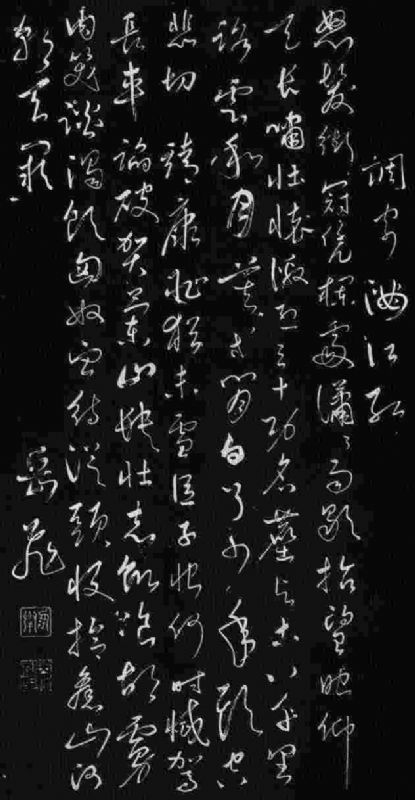 調寄滿江紅
怒髮衝冠凭欄處瀟〻雨歇抬望眼仰
天長嘯壯懷激烈三十功名塵與土八千里
路雲和月莫等閒白了少年頭空
悲切 靖康恥猶未雪臣子恨何時滅駕
長車踏破賀蘭山缺壯志飢飡胡虜
肉笑談渴飲匈奴血待從頭收拾舊山河
朝天闕
岳飛